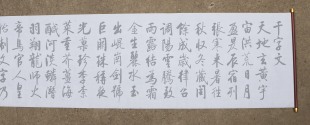 千字文
天地玄黃宇
宙洪荒日月
盈昃辰宿列
張寒來暑往
秋收冬藏閏
餘成歲律呂
調陽雲騰致
雨露結為霜
金生麗水玉
出崑崗劍號
巨闕珠稱夜
光果珍李柰
菜重芥薑海
鹹河淡鱗潛
羽翔龍師火
帝鳥官人皇
始制文字乃